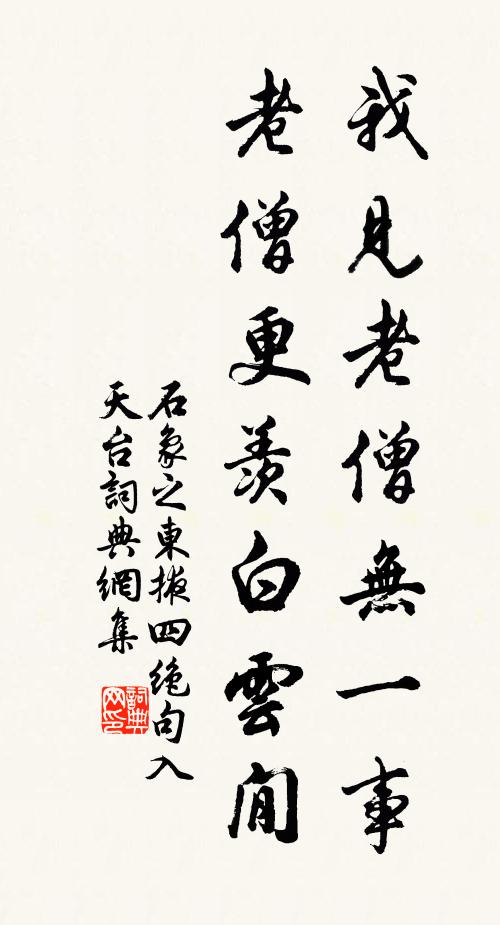 我見老僧無一事
老僧更羨白雲閒
石象之東掖四絕句入
天台詞典網集
詞典网印